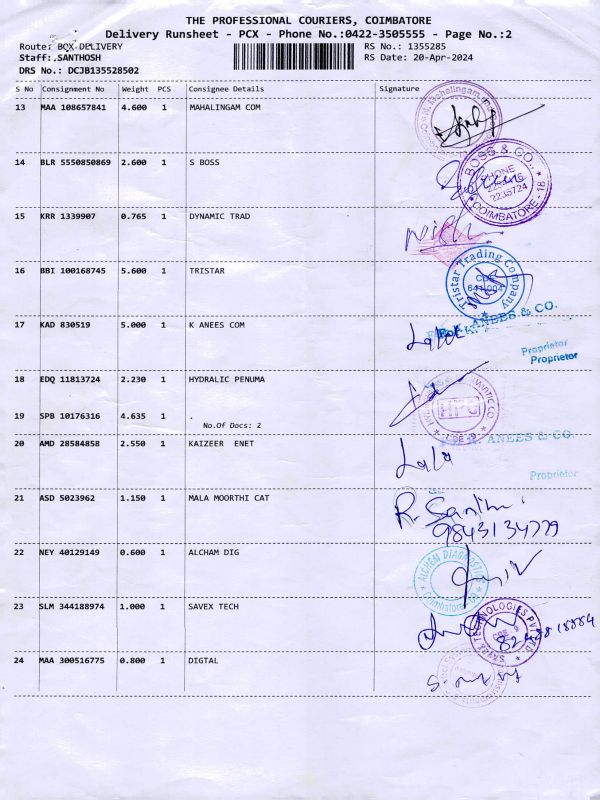 THE PROFESSIONAL COURIERS, COIMBATORE
Delivery Runsheet - PCX - Phone No.:0422-3505555 - Page No.:2
Route: BOX DELIVERY RS No.: 1355285
Staff:,SANTHOSH RS Date: 20-Apr-2024
DRS No.: DCJB135528502
S No Consignment No Weight PCS Consignee Details Signature
13 MAA 108657841 4.600 1 MAHALINGAM COM
14 BLR 5550850869 2.600 1 S BOSS
BOSS & CO.,
PHONE
2235724
COIMBATORE - 18
15 KRR 1339907 0.765 1 DYNAMIC TRAD
16 BBI 100168745 5.600 1 TRISTAR
Tristar Trading Company
CBE
641 004
17 KAD 830519 5.000 1 K ANEES COM
ANEES & CO.
Lala
Proprietor
Proprietor
18 EDQ 11813724 2.230 1 HYDRALIC PENUMA
19 SPB 10176316 4.635 1
No.Of Docs: 2
HPC
CBE-9
20 AMD 28584858 2.550 1 KAIZEER ENET
ANEES & CO.
Lala
Proprietor
21 ASD 5023962 1.150 1 MALA MOORTHI CAT
R. Santhi
9843134779
22 NEY 40129149 0.600 1 ALCHAM DIG
ALCHEM DIAGNOSTICS
Coimbatore
23 SLM 344188974 1.000 1 SAVEX TECH
SAVEX TECHNOLOGIES PVT LTD
24 MAA 300516775 0.800 1 DIGTAL